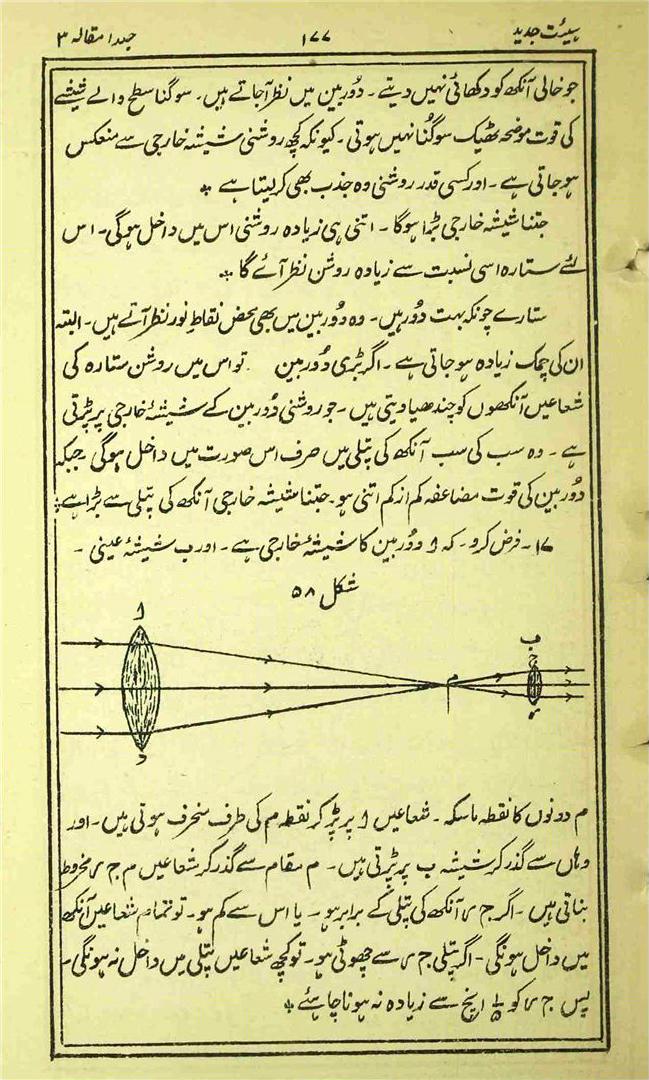 ہیئت جدید ۱۷۷ جلد ۱ مقالہ ۳
جو خالی آنکھ کو دکھائی نہیں دیتے ۔ دُوربین میں نظر آجاتے ہیں ۔ سوگنا سطح والے شیشے
کی قوت موضحہ ٹھیک سوگُنا نہیں ہوتی ۔ کیونکہ کچھ روشنی شیشہ خارجی سے منعکس
ہو جاتی ہے ۔ اور کسی قدر روشنی وہ جذب بھی کر لیتا ہے ٭
جتنا شیشہ خارجی بڑا ہوگا ۔ اتنی ہی زیادہ روشنی اس میں داخل ہوگی ۔ اس
لئے ستارہ اسی نسبت سے زیادہ روشن نظر آئے گا ٭
ستارے چونکہ بہت دُور ہیں ۔ وہ دُوربین میں بھی محض نقاطِ نور نظر آتے ہیں ۔ البتہ
ان کی چمک زیادہ ہو جاتی ہے ۔ اگر بڑی دُوربین تو اس میں روشن ستارہ کی
شعاعیں آنکھوں کو چندھیا دیتی ہیں ۔ جو روشنی دُوربین کے شیشۂ خارجی پر پڑتی
ہے ۔ وہ سب کی سب آنکھ کی پتلی میں صرف اس صورت میں داخل ہوگی جبکہ
دُوربین کی قوت مضاعفہ کم از کم اتنی ہو ۔ جتنا شیشہ خارجی آنکھ کی پتلی سے بڑا ہے ٭
۱۷ ۔ فرض کرو ۔ کہ ا د دُوربین کا شیشۂ خارجی ہے ۔ اور ب شیشۂ عینی ۔
شکل ۵۸
ا
ب
ج
م
ر
د
م دونوں کا نقطہ ماسکہ ۔ شعاعیں ا پر پڑ کر نقطہ م کی طرف منحرف ہوتی ہیں ۔ اور
وہاں سے گذر کر شیشہ ب پر پڑتی ہیں ۔ م مقام سے گذر کر شعاعیں م ج ر مخروط
بناتی ہیں ۔ اگر ج ر آنکھ کی پتلی کے برابر ہو ۔ یا اس سے کم ہو ۔ تو تمام شعاعیں آنکھ
میں داخل ہونگی ۔ اگر پتلی ج ر سے چھوٹی ہو ۔ تو کچھ شعاعیں پتلی میں داخل نہ ہونگی ۔
پس ج ر کو ⅕ انچ سے زیادہ نہ ہونا چاہئے ٭